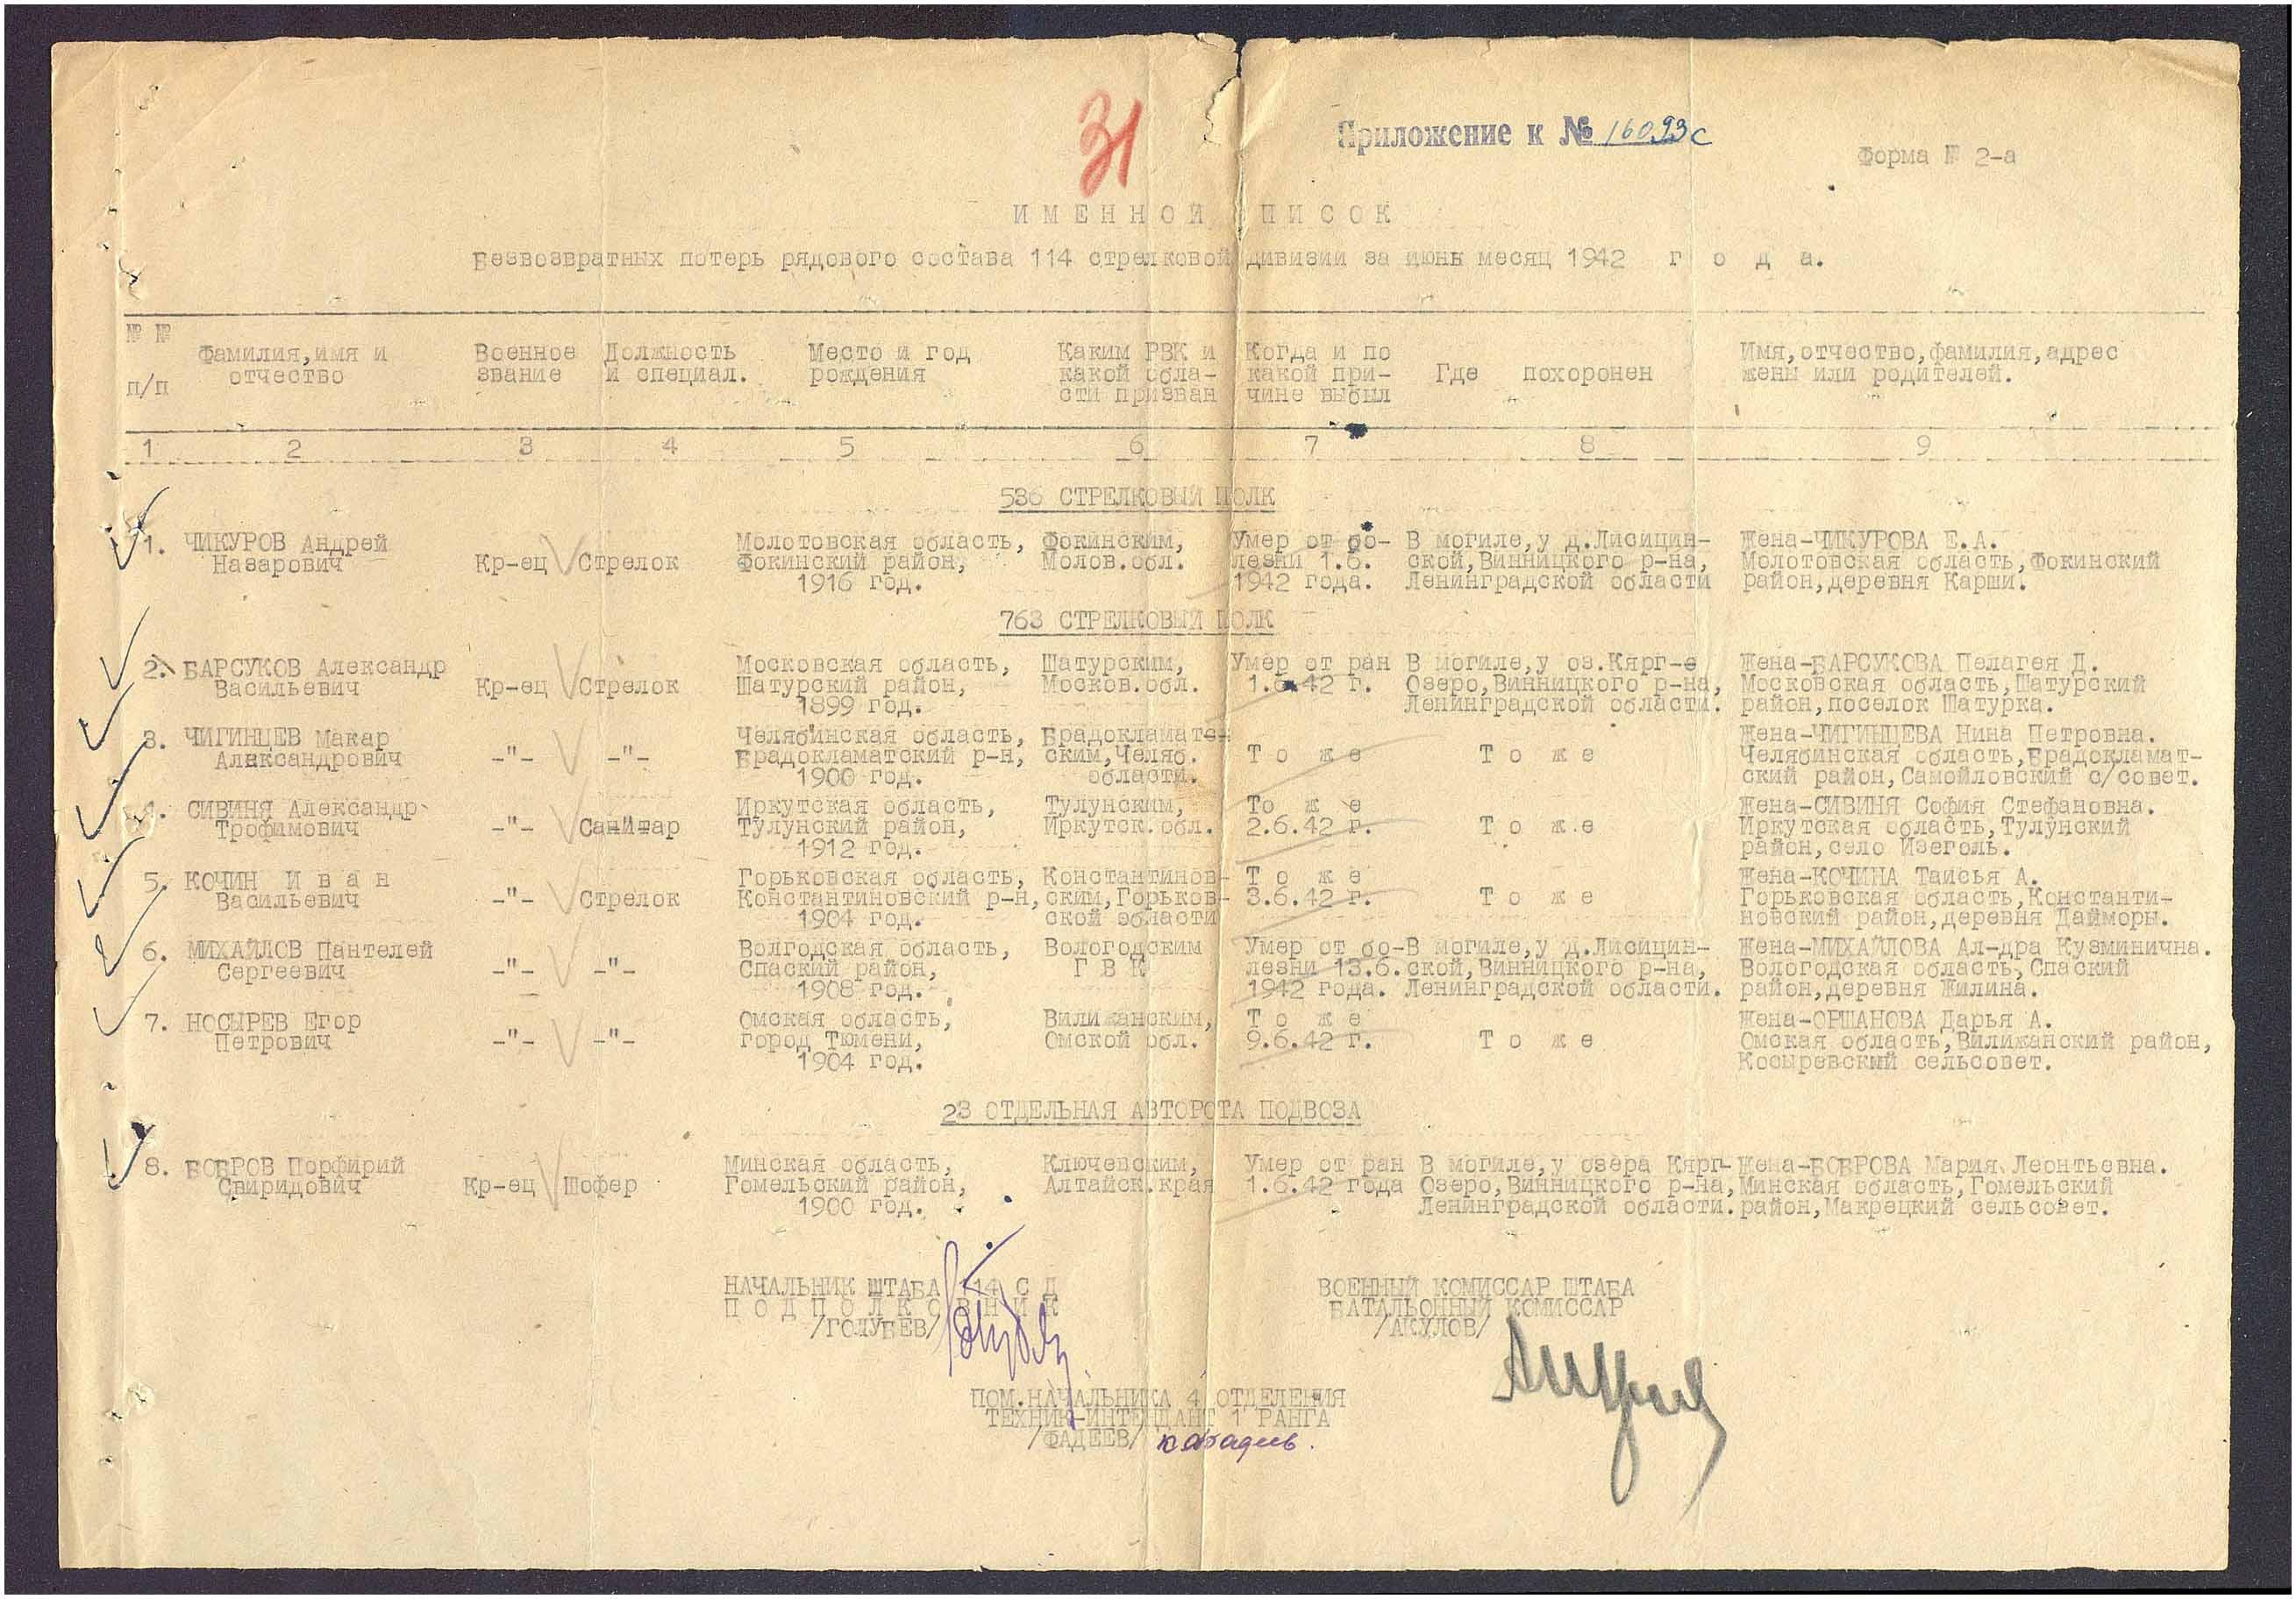 31
Приложение к № 16093с
Форма № 2-а
ИМЕННОЙ СПИСОК
Безвозвратных потерь рядового состава 114 стрелковой дивизии за июнь месяц 1942 года.
№ № п/п Фамилия,имя и отчество Военное звание Должность и специал. Место и год рождения Каким РВК и какой обла- сти призван Когда и по какой при- чине выбыл Где похоронен Имя,отчество,фамилия,адрес жены или родителей.
1 2 3 4 5 6 7 8 9
536 СТРЕЛКОВЫЙ ПОЛК
1. ЧИКУРОВ Андрей Молотовская область, Фокинским, Умер от бо- В могиле,у д.Лисицин- Жена-ЧИКУРОВА Е.А.
Назарович Кр-ец Стрелок Фокинский район, Молов.обл. лезни 1.6. ской,Винницкого р-на, Молотовская область,Фокинский
1916 год. 1942 года. Ленинградской области район,деревня Карши.
763 СТРЕЛКОВЫЙ ПОЛК
2. БАРСУКОВ Александр Московская область, Шатурским, Умер от ран В могиле,у оз.Кярг-е Жена-БАРСУКОВА Пелагея Д.
Васильевич Кр-ец Стрелок Шатурский район, Москов.обл. 1.6.42 г. Озеро,Винницкого р-на, Московская область,Шатурский
1899 год. Ленинградской области. район,поселок Шатурка.
3. ЧИГИНЦЕВ Макар Челябинская область, Брадокламатск- Жена-ЧИГИНЦЕВА Нина Петровна.
Александрович -"- -"- Брадокламатский р-н, ским,Челяб. То же То же Челябинская область,Брадокламат-
1900 год. области. ский район,Самойловский с/совет.
4. СИВИНЯ Александр Иркутская область, Тулунским, То же Жена-СИВИНЯ София Стефановна.
Трофимович -"- Санитар Тулунский район, Иркутск.обл. 2.6.42 г. То же Иркутская область,Тулунский
1912 год. район,село Изеголь.
5. КОЧИН Иван Горьковская область, Константинов- То же Жена-КОЧИНА Таисья А.
Васильевич -"- Стрелок Константиновский р-н, ским,Горьков- 3.6.42 г. То же Горьковская область,Константи-
1904 год. ской области новский район,деревня Дайморы.
6. МИХАЙЛОВ Пантелей Волгодская область, Вологодским Умер от бо- В могиле,у д.Лисицин- Жена-МИХАЙЛОВА Ал-дра Кузминична.
Сергеевич -"- -"- Спаский район, ГВК лезни 13.6. ской,Винницкого р-на, Вологодская область,Спаский
1908 год. 1942 года. Ленинградской области. район,деревня Жилина.
7. НОСЫРЕВ Егор Омская область, Вилижанским, То же Жена-ОРШАНОВА Дарья А.
Петрович -"- -"- город Тюмени, Омской обл. 9.6.42 г. То же Омская область,Вилижанский район,
1904 год. Косыревский сельсовет.
23 ОТДЕЛЬНАЯ АВТОРОТА ПОДВОЗА
8. БОБРОВ Порфирий Минская область, Ключевским, Умер от ран В могиле,у озера Кярг- Жена-БОБРОВА Мария Леонтьевна.
Свиридович Кр-ец Шофер Гомельский район, Алтайск.края 1.6.42 года Озеро,Винницкого р-на, Минская область,Гомельский
1900 год. Ленинградской области. район,Макрецкий сельсовет.
НАЧАЛЬНИК ШТАБА 114 СД ВОЕННЫЙ КОМИССАР ШТАБА
ПОДПОЛКОВНИК БАТАЛЬОННЫЙ КОМИССАР
/ГОЛУБЕВ/ /АКУЛОВ/
ПОМ.НАЧАЛЬНИКА 4 ОТДЕЛЕНИЯ
ТЕХНИК-ИНТЕНДАНТ 1 РАНГА
/ФАДЕЕВ/